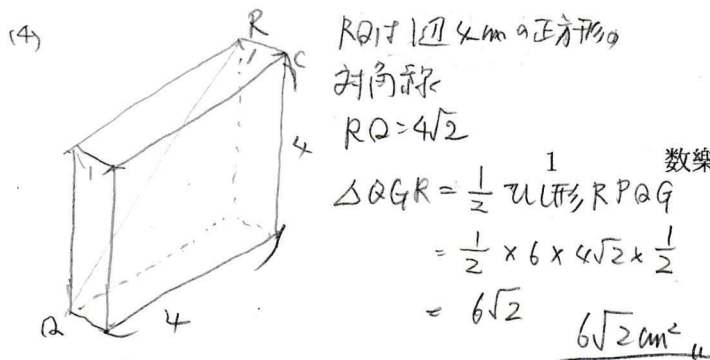 (4)
R
C
1
4
1
Q
4
RQは1辺4cmの正方形の
対角線
RQ=4√2
1
数樂
△QGR = 1/2 ひし形RPQG
= 1/2 × 6 × 4√2 × 1/2
= 6√2
6√2cm²